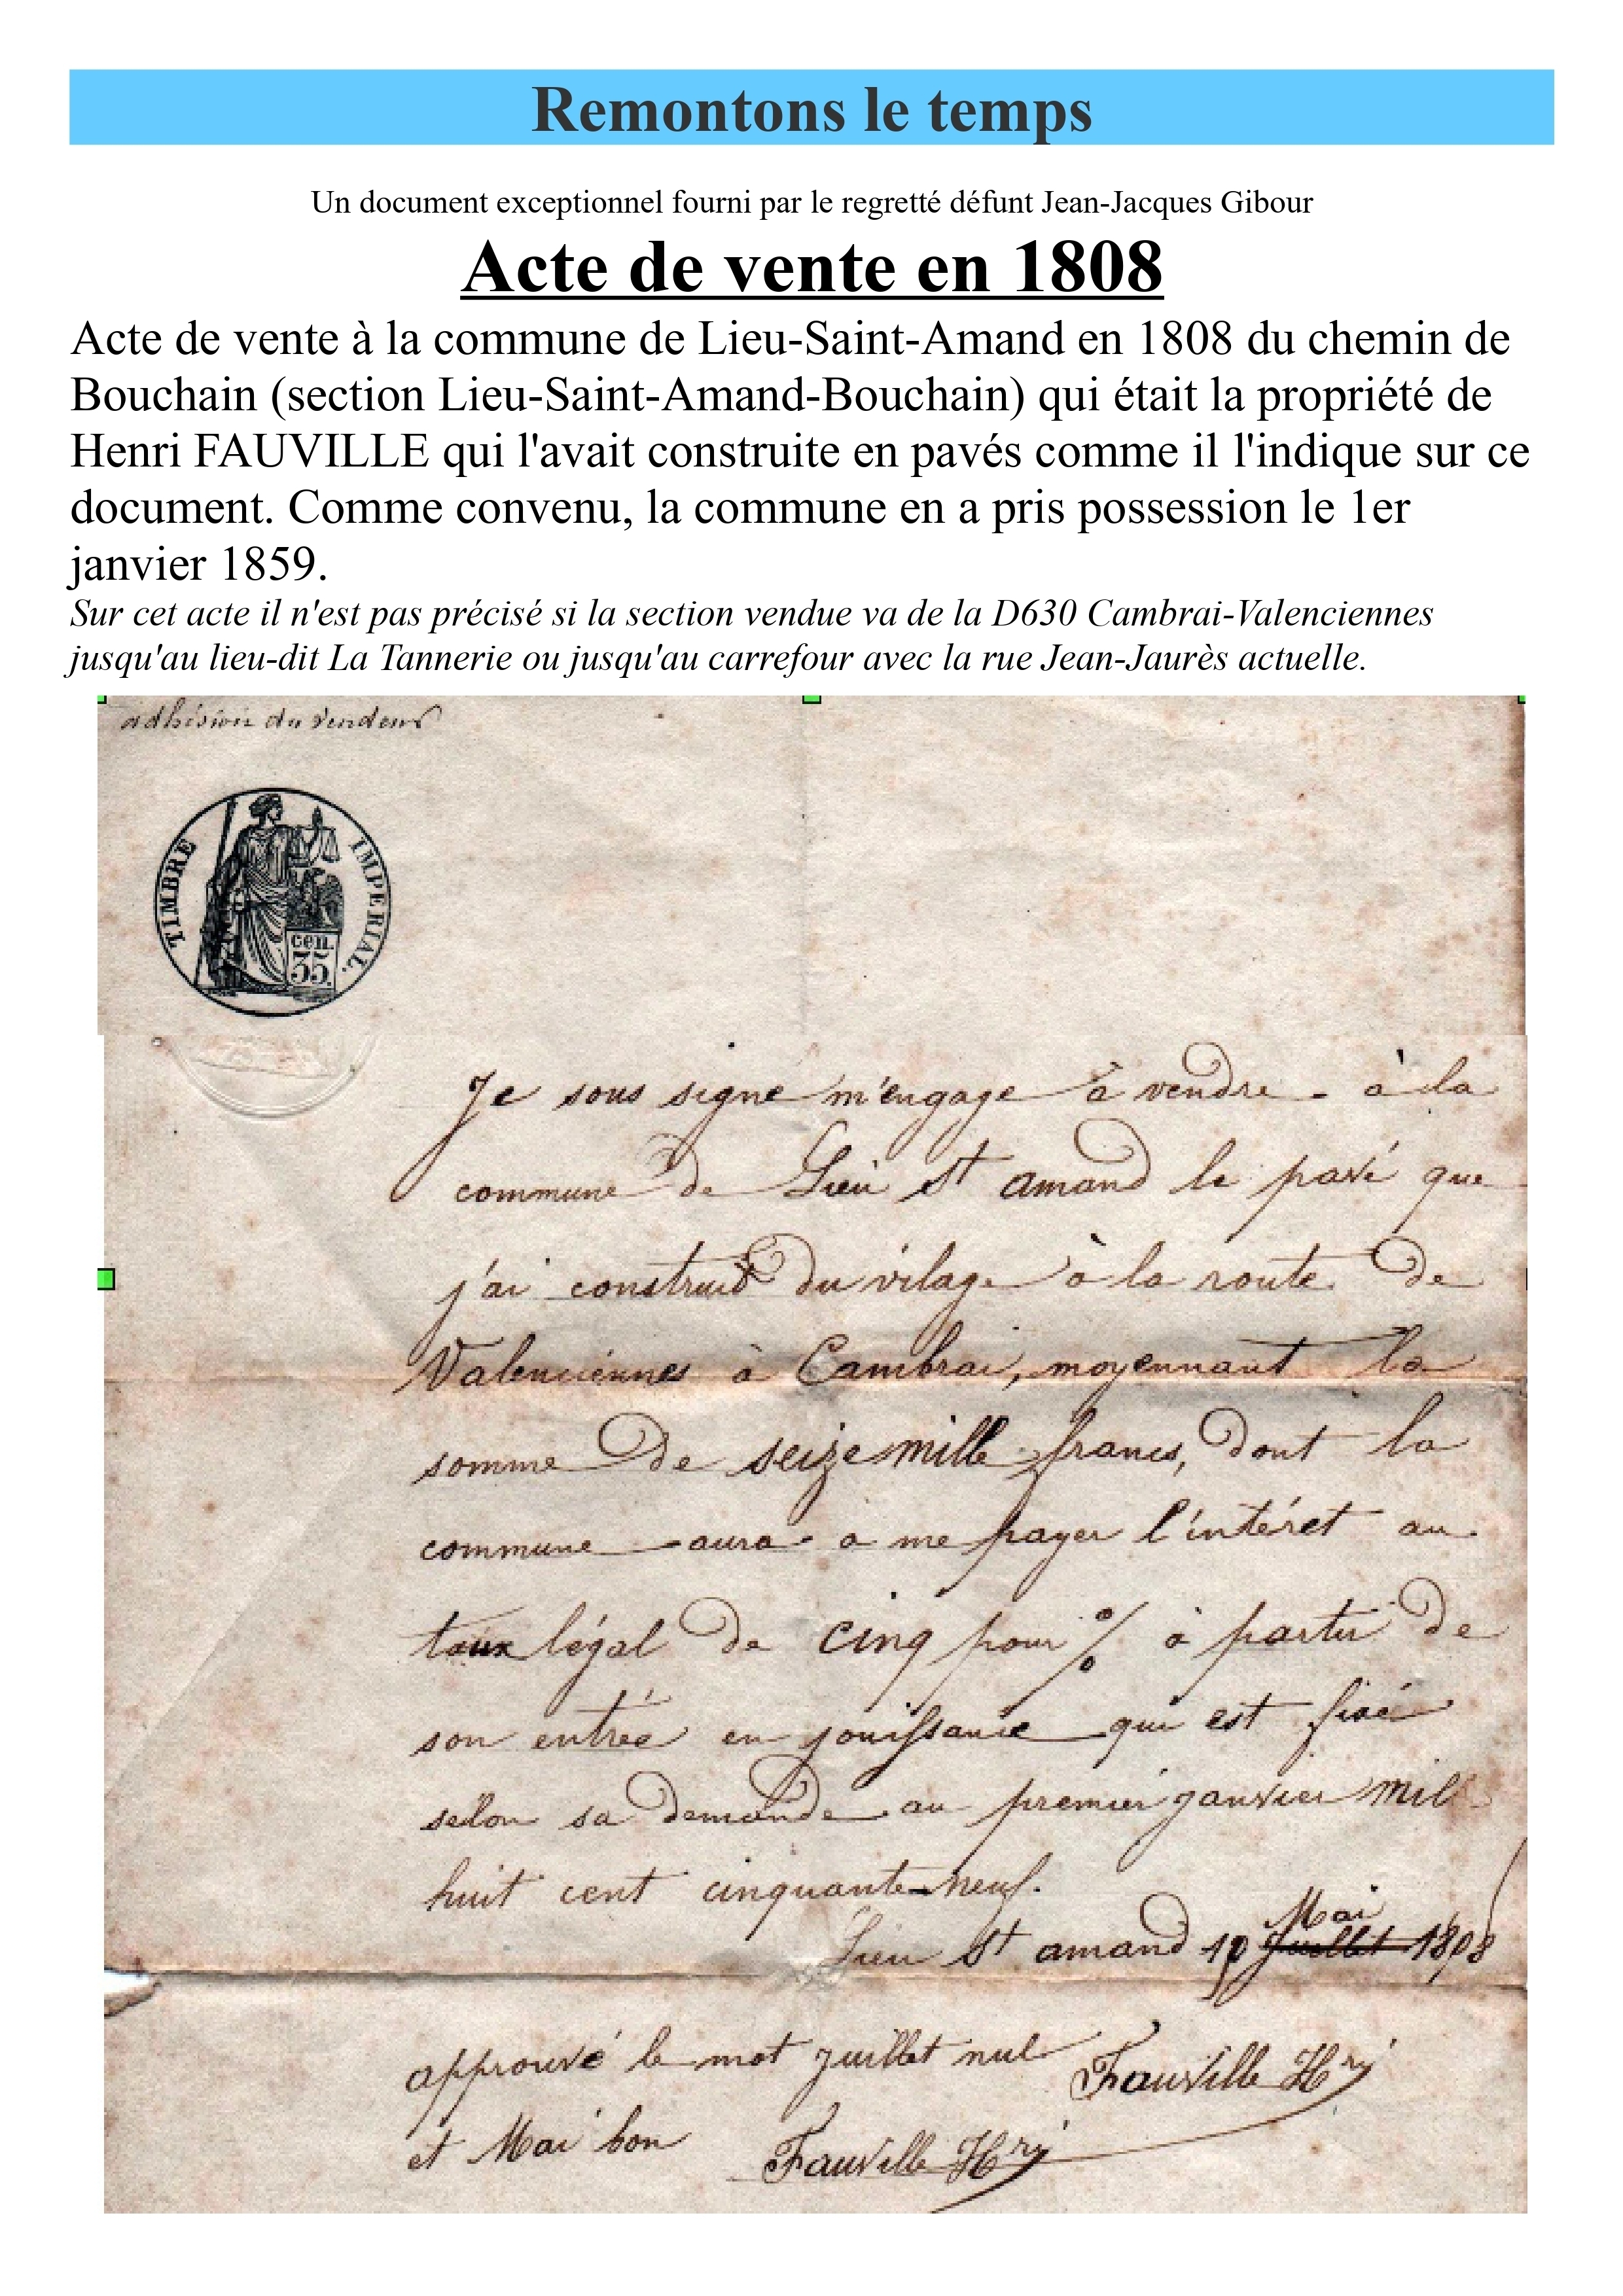 Remontons le temps
Un document exceptionnel fourni par le regretté défunt Jean-Jacques Gibour
Acte de vente en 1808
Acte de vente à la commune de Lieu-Saint-Amand en 1808 du chemin de
Bouchain (section Lieu-Saint-Amand-Bouchain) qui était la propriété de
Henri FAUVILLE qui l'avait construite en pavés comme il l'indique sur ce
document. Comme convenu, la commune en a pris possession le 1er
janvier 1859.
Sur cet acte il n'est pas précisé si la section vendue va de la D630 Cambrai-Valenciennes
jusqu'au lieu-dit La Tannerie ou jusqu'au carrefour avec la rue Jean-Jaurès actuelle.
adhésion du vendeur
TIMBRE IMPERIAL.
cen.
35.
Je sous signé m'engage à vendre - à la
commune de Lieu St amand le pavé que
j'ai construit du vilage à la route de
Valenciennes à Cambrai, moyennant la
somme de seize mille francs, dont la
commune aura a me payer l'intéret au
taux légal de cinq pour % à partir de
son entrée en jouissance qui est fixé
selon sa demande au premier janvier mil
huit cent cinquante-neuf.
Mai
Lieu St amand Juillet 1808
approuvé le mot juillet nul Fauville Hri
et Mai bon Fauville Hri